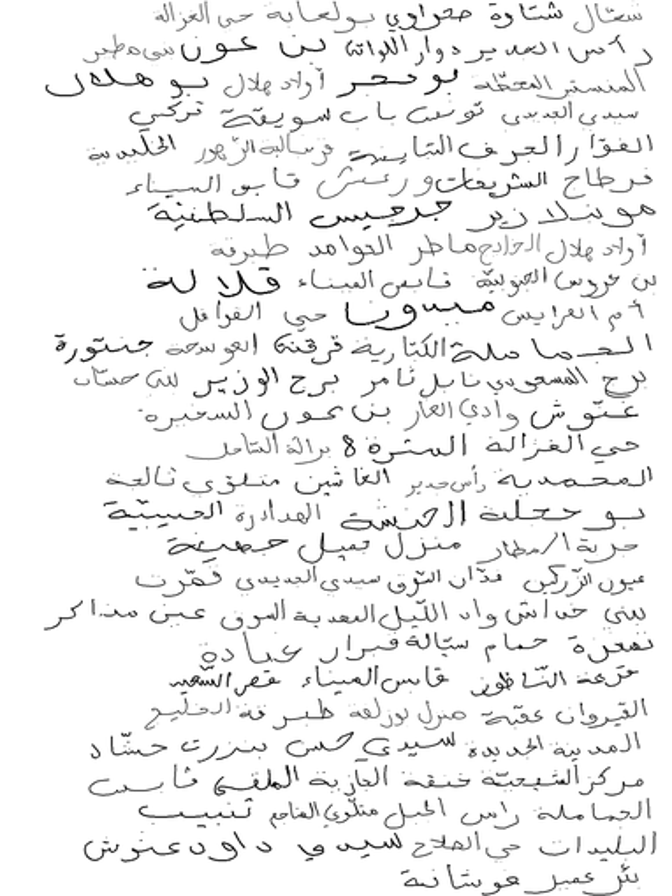 شتال شتاوة صحراوي بولعابة حي الغزالة
رأس الغدير دوار اللواتة بن عون بني مطير
المنستير المحطة بو حجر أولاد هلال بو هلال
سيدي الجديدي تونس باب سويقة تركي
الفوار الجرف الثانية فرسالية الزهور الخليدية
قرطاج الشريفات ورغش قابو الميناء
مونبلازير جرجيس السلطنية
أولاد هلال الخليج ماطر القوامد طبرقة
بن عروس الجنوبية قابس الميناء قلالة
أم العرايس ميدونا حي القوافل
الحمامات الكتارية قرقنة العوسجة جنتورة
برج المسعودي نابل ثامر برج الوزير بني حسان
غنوش وادي الغار بن عون السخيرة
حي الغزالة السترة 8 برالة الساحل
المحمدية رأس جدير الغاشين منزوي تالجة
بو حجلة الخنشة الهدادرة الحبيبية
حربة المطار منزل تميل حصينة
عيون الزركين فدان السوق سيدي الجديدي قمرت
بني خداش واد الليل المعدية السوق عين مذاكر
نعجة حمام سيالة قبرار عبادة
ترعة الناظور قابس الميناء قصر السعيد
القيروان عقبة منزل بوزلفة طبرقة الخليج
المدينة الجديدة سيدي حسن بنزرت حشاد
مركز الشيحية خنقة الجازية الملقى قابس
الحمامات راس الجبل منلوي الفاجم تنبيب
البليدات حي الصلاح سيدي داود غنوش
بئر عميل غوشانة